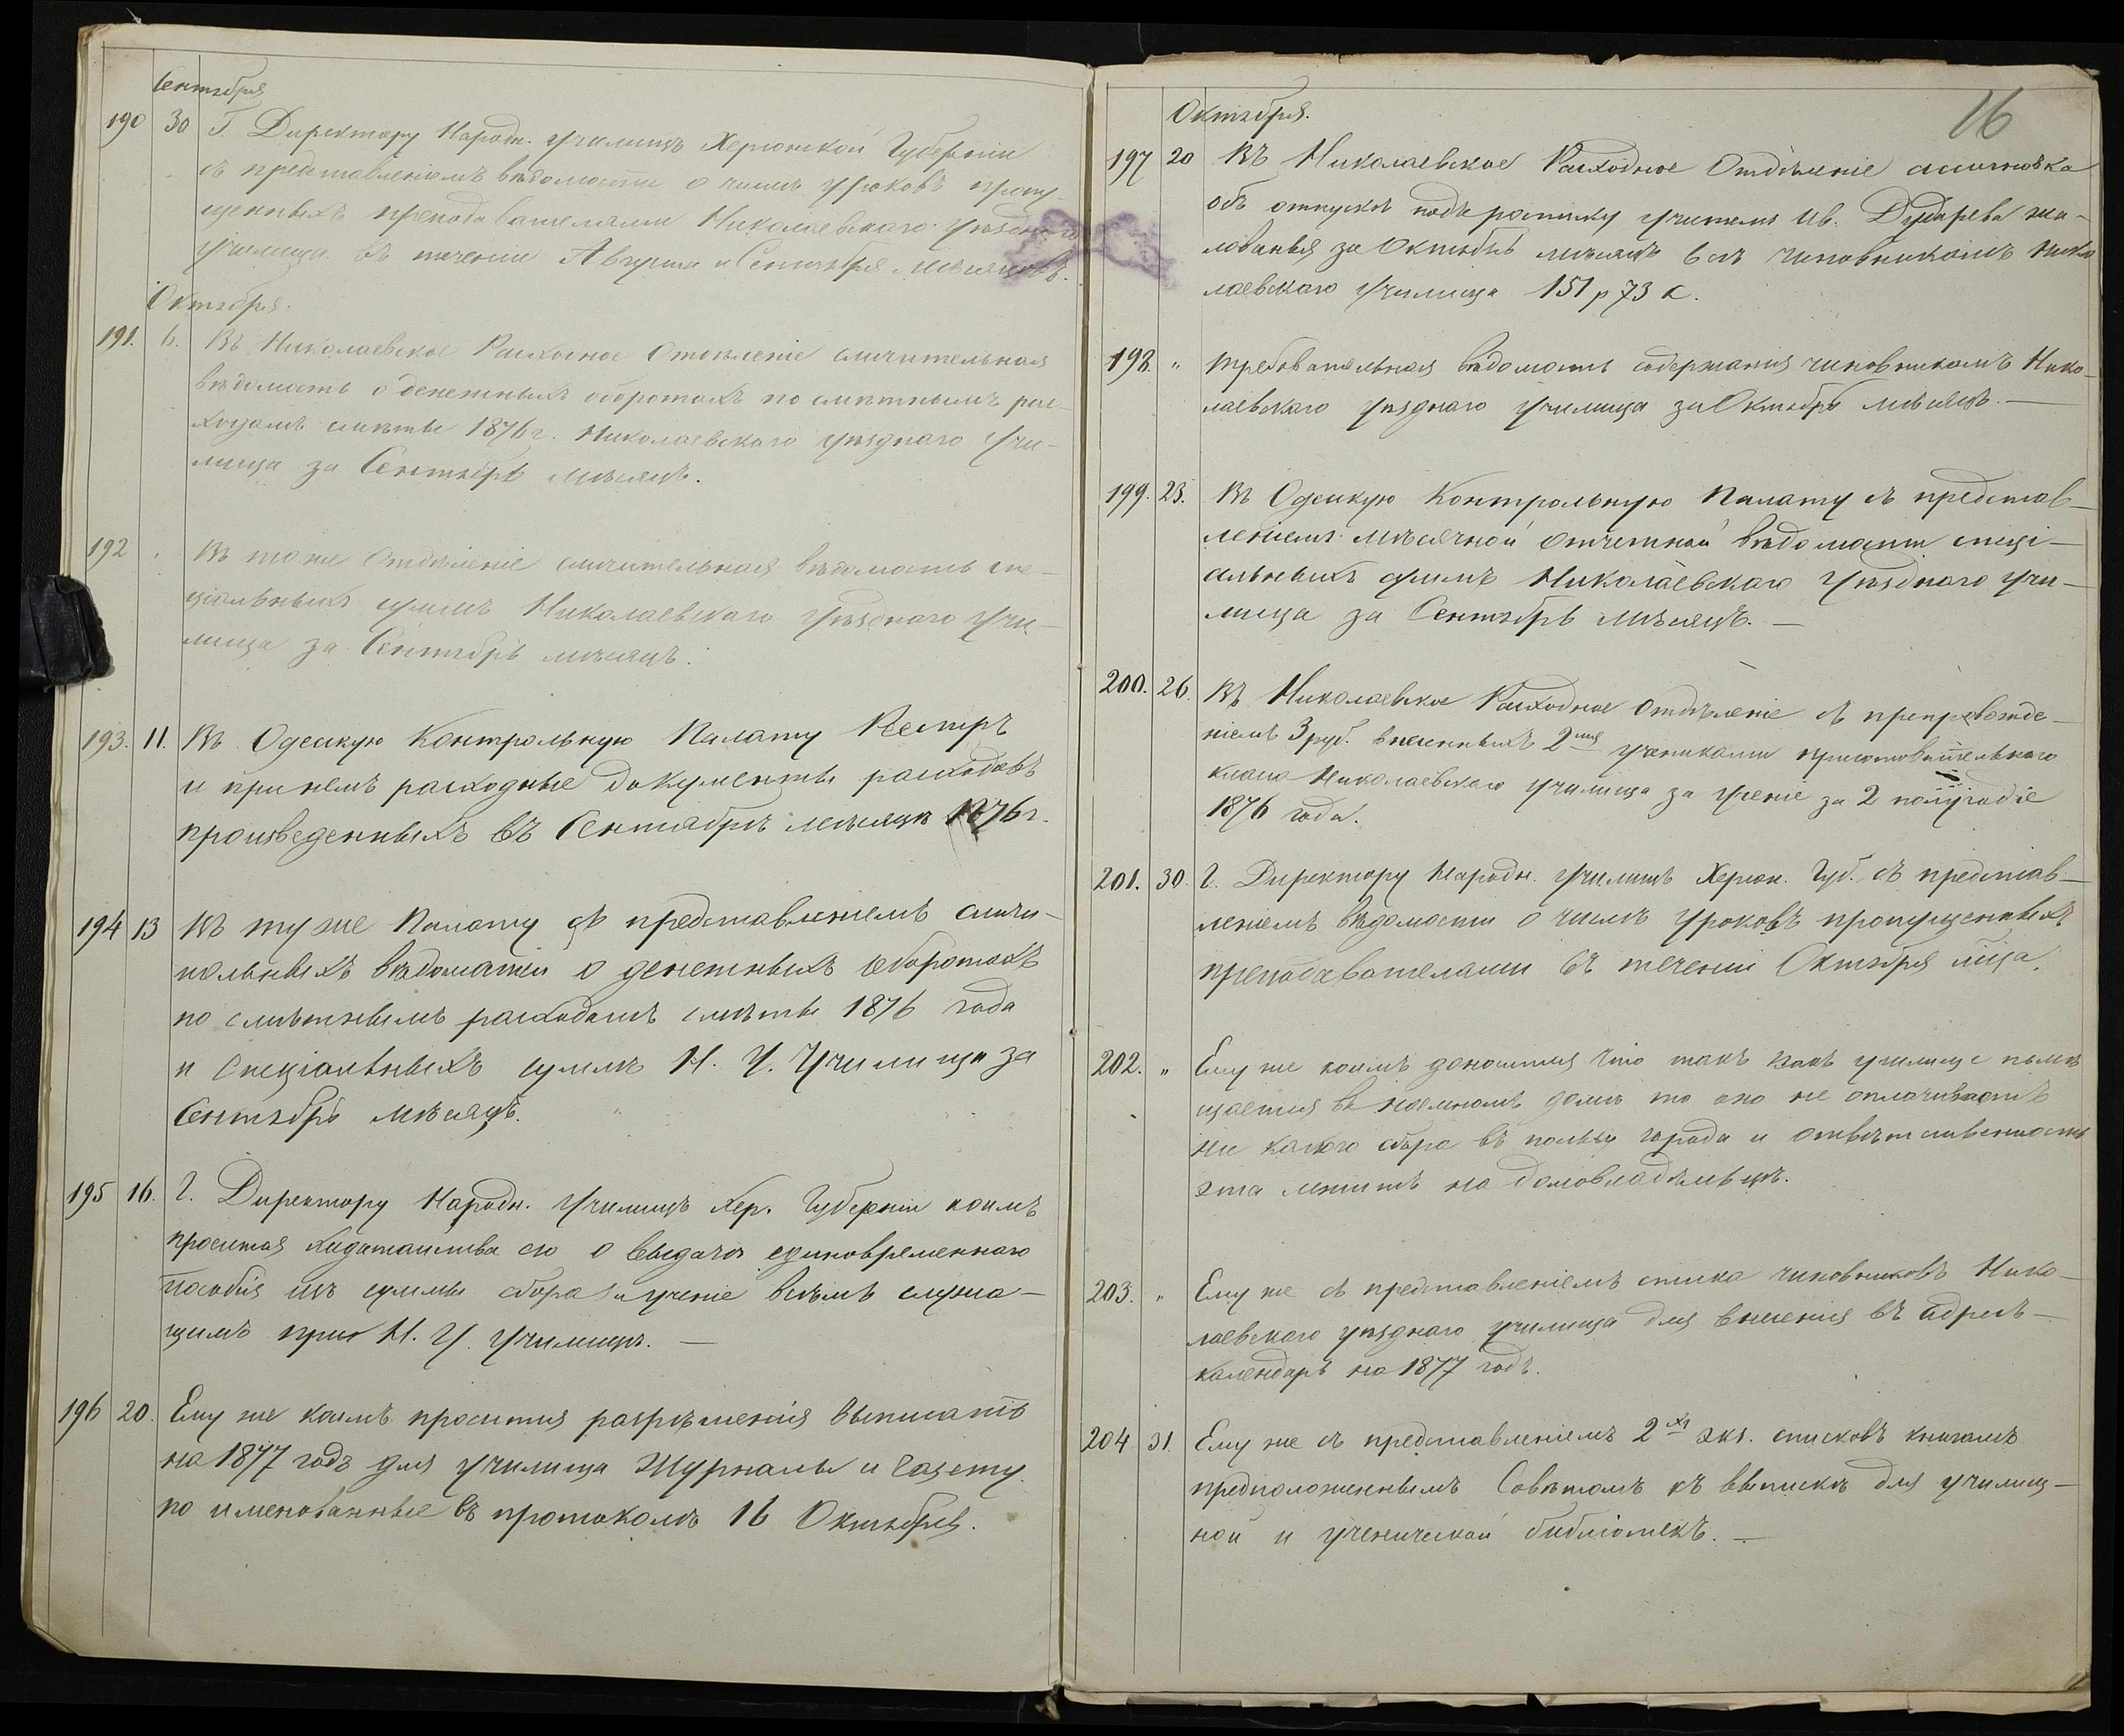 Сентября
190 30 Г. Директору Народн. Училищъ Херсонской Губерніи
съ представленіемъ вѣдомости о числѣ уроковъ пропу
щенныхъ преподавателями Николаевскаго Уѣзднаго
Училища въ теченіи Августа и Сентября мѣсяцовъ.
Октября.
191. 6. Въ Николаевское Расходное Отдѣленіе сличительная
вѣдомость о денежныхъ оборотахъ по смѣтнымъ рас-
ходамъ смѣты 1876 г. Николаевскаго уѣзднаго Учи-
лища за Сентябрь мѣсяцъ.
192 Въ тоже Отдѣленіе сличительная вѣдомость спе-
ціальныхъ суммъ Николаевскаго Уѣзднаго Учи-
лища за Сентябрь мѣсяцъ.
193. 11. Въ Одесскую Контрольную Палату Реестръ
и при немъ расходные документы расходовъ
произведенныхъ въ Сентябрѣ мѣсяцѣ 1876 г.
194 13 Въ ту же Палату съ представленіемъ сличи-
тельныхъ вѣдомостей о денежныхъ оборотахъ
по смѣтнымъ расходамъ смѣты 1876 года
и Спеціальныхъ суммъ Н. У. Училища за
Сентябрь мѣсяцъ.
195 16. Г. Директору Народн. Училищъ Хер. Губерніи коимъ
просится ходатайства его о выдачѣ единовременнаго
пособія изъ суммы сбора за ученіе всѣмъ служа-
щимъ при Н. У. Училищѣ. —
196 20. Ему же коимъ просится разрѣшенія выписать
на 1877 годъ для училища Журналы и Газету
по именованные въ протоколѣ 16 Октября.
16
Октября.
197 20 Въ Николаевское Расходное Отдѣленіе ассигновка
объ отпускѣ подъ росписку учителя Ив. Дударева жа-
лованья за Октябрь мѣсяцъ всѣмъ чиновникамъ Нико
лаевскаго Училища 151 р 73 к.
198. " Требовательная вѣдомость содержанія чиновникамъ Нико-
лаевскаго уѣзднаго училища за Октябрь мѣсяцъ. —
199. 23. Въ Одесскую Контрольную Палату съ представ-
леніемъ мѣсячной отчетной вѣдомости спеці-
альныхъ суммъ Николаевскаго Уѣзднаго Учи-
лища за Сентябрь мѣсяцъ. —
200. 26. Въ Николаевское Расходное Отдѣленіе съ препровожде-
ніемъ 3 руб. внесенныхъ 2мя учениками приготовительнаго
класса Николаевскаго училища за ученіе за 2 полугодіе
1876 года.
201. 30. Г. Директору Народн. Училищъ Херсон. Губ. съ представ-
леніемъ вѣдомости о числѣ уроковъ пропущенныхъ
преподавателями въ теченіи Октября м-ца.
202. " Ему же коимъ доносится что такъ какъ училище помѣ
щается въ наемномъ домѣ то оно не оплачиваетъ
ни какого сбора въ пользу города и отвѣтственность
эта лежитъ на домовладѣльцѣ.
203. " Ему же съ представленіемъ списка чиновниковъ Нико-
лаевскаго уѣзднаго училища для внесенія въ Адресъ-
календарь на 1877 годъ.
204 31. Ему же съ представленіемъ 2хъ экз. списковъ книгамъ
предположеннымъ Совѣтомъ къ выпискѣ для училищ-
ной и ученической библіотекъ. —